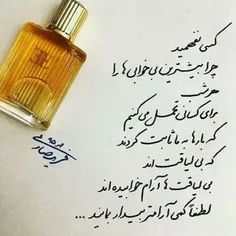 کسی نفهمید
چرا بیشترین بی‌خوابی‌ها را
هر شب
برای کسانی تحمل می‌کنیم
که بارها به ما ثابت کردند
که بی لیاقت اند
بی لیاقت ها آرام خوابیده اند
لطفاً کمی آرامتر بیدار بمانید ...